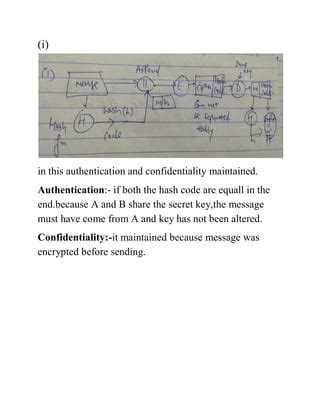 (i)
(1)
Append
Same
key
E
D
M
H
hash(h)
code
Hash
fn
Can not
be separated
easily
in this authentication and confidentiality maintained.
Authentication:- if both the hash code are equall in the
end.because A and B share the secret key,the message
must have come from A and key has not been altered.
Confidentiality:-it maintained because message was
encrypted before sending.